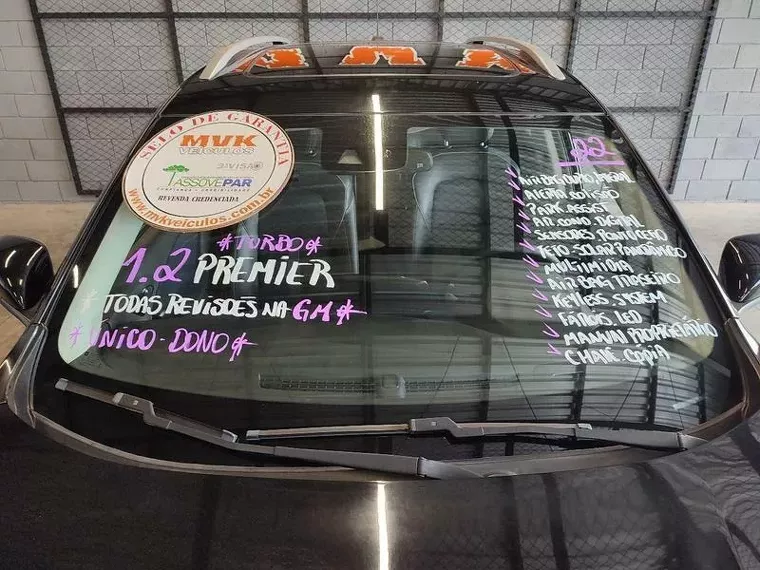 SELO DE GARANTIA
MVK
VEÍCULOS
ASSOVEPAR
REVENDA CREDENCIADA
www.mvkveiculos.com.br
*TURBO*
1.2 PREMIER
* TODAS REVISÕES NA GM *
* ÚNICO-DONO *
22
ALERTA COLISÃO
PARK ASSIST
AR COND. DIGITAL
SENSORES
TETO SOLAR PANORÂMICO
MULTIMIDIA
AIR BAG TRASEIRO
KEYLESS SYSTEM
FAROIS LED
MANUAL PROPRIETÁRIO
CHAVE COPIA